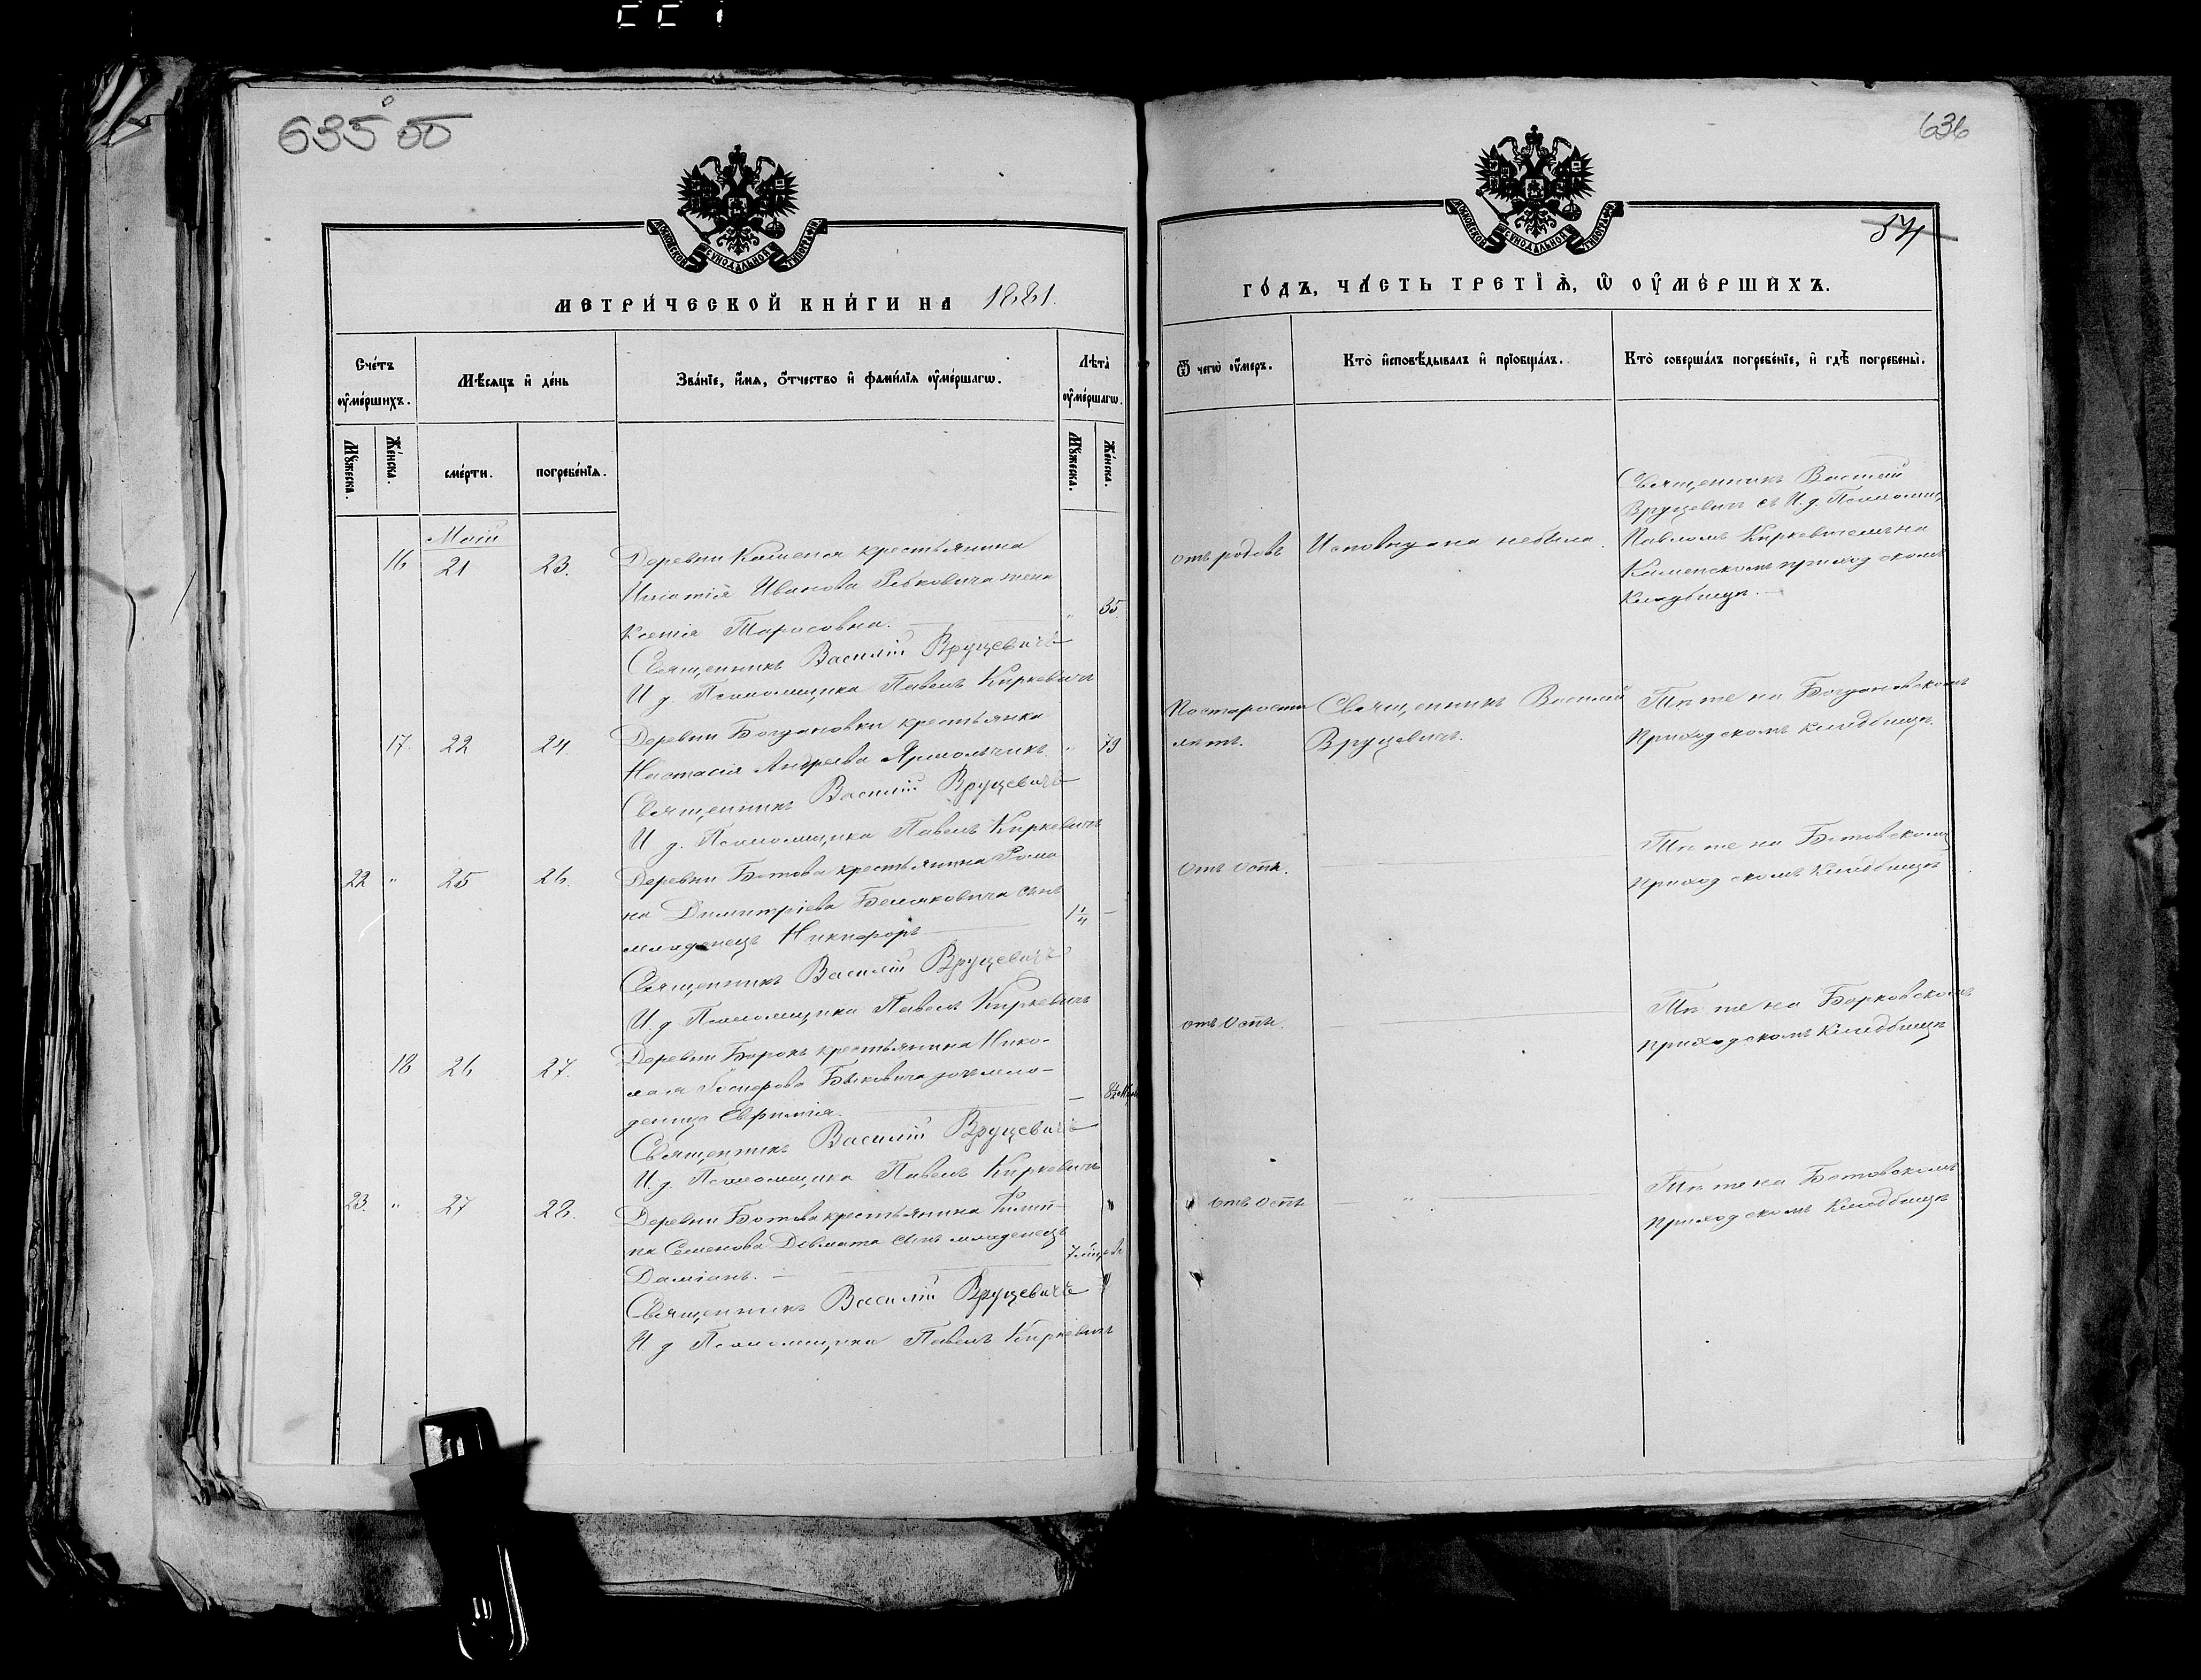 635 об
МЕТРИ́ЧЕСКОЙ КНИ́ГИ НА 1881.
Сче́тъ оу҆ме́ршихъ.
Мѣ́сяцъ и҆ де́нь
Зва́нїе, и҆́мѧ, ѻ҆́тчество и҆ фами́лїѧ оу҆ме́ршагѡ.
Лѣта̀ оу҆ме́ршагѡ.
Мꙋ́жеска.
Же́нска.
сме́рти.
погребе́нїѧ.
Мꙋ́жеска.
Же́нска.
Май
16 21 23.
Деревни Каменя крестьянина
Игнатія Иванова Рабковича жена
Ксенія Тарасовна. " 35.
Священникъ Василій Вруцевичъ
И. д. Псаломщика Павелъ Киркевичъ
17. 22 24
Деревни Богдановки крестьянка
Настасія Андреева Ярмольчикъ " 79
Священникъ Василій Вруцевичъ
И д. Псаломщика Павелъ Киркевичъ
22 " 25 26.
Деревни Ботова крестьянина Рома
на Димитріева сынъ
младенецъ Никифоръ 1 1/4 —
Священникъ Василій Вруцевичъ
И. д Псаломщика Павелъ Киркевичъ
18 26 27.
Деревни Борокъ крестьянина Нико-
лая дочь мла-
деница Евфимія. —
Священникъ Василій Вруцевичъ
И. д. Псаломщика Павелъ Киркевичъ
23. " 27 28.
Деревни Ботова крестьянина Филип-
па Семенова сынъ младенецъ
Даміанъ. —
Священникъ Василій Вруцевичъ
И д Псаломщика Павелъ Киркевичъ
636
ГО́ДЪ, ЧА́СТЬ ТРЕ́ТІѦ, Ѡ҆ ОУ҆МЕ́РШИХЪ.
Ѿ чегѡ̀ оу҆́меръ.
Кто̀ и҆сповѣ́дывалъ и҆ прїобща́лъ.
Кто̀ соверша́лъ погребе́нїе, и҆ гдѣ̀ погребены̀.
отъ родовъ
Исповѣдана небыла.
Священникъ Василій
Вруцевичъ съ И. д. Псаломщ.
Павломъ Киркевичемъ на
Каменскомъ приходскомъ
Кладбищѣ.
По старости
лѣтъ.
Священникъ Василій
Вруцевичъ.
Тѣ же на Богдановскомъ
приходскомъ кладбищѣ.
Отъ оспы.
Тѣ же на Ботовскомъ
приходскомъ Кладбищѣ
отъ Оспы.
Тѣ же на Борковскомъ
приходскомъ Кладбищѣ
отъ Оспы
Тѣ же на Ботовскомъ
приходскомъ Кладбищѣ
МОСКОВСКОЙ СѴНОДАЛЬНОЙ ТИПОГРАФІИ
МОСКОВСКОЙ СѴНОДАЛЬНОЙ ТИПОГРАФІИ